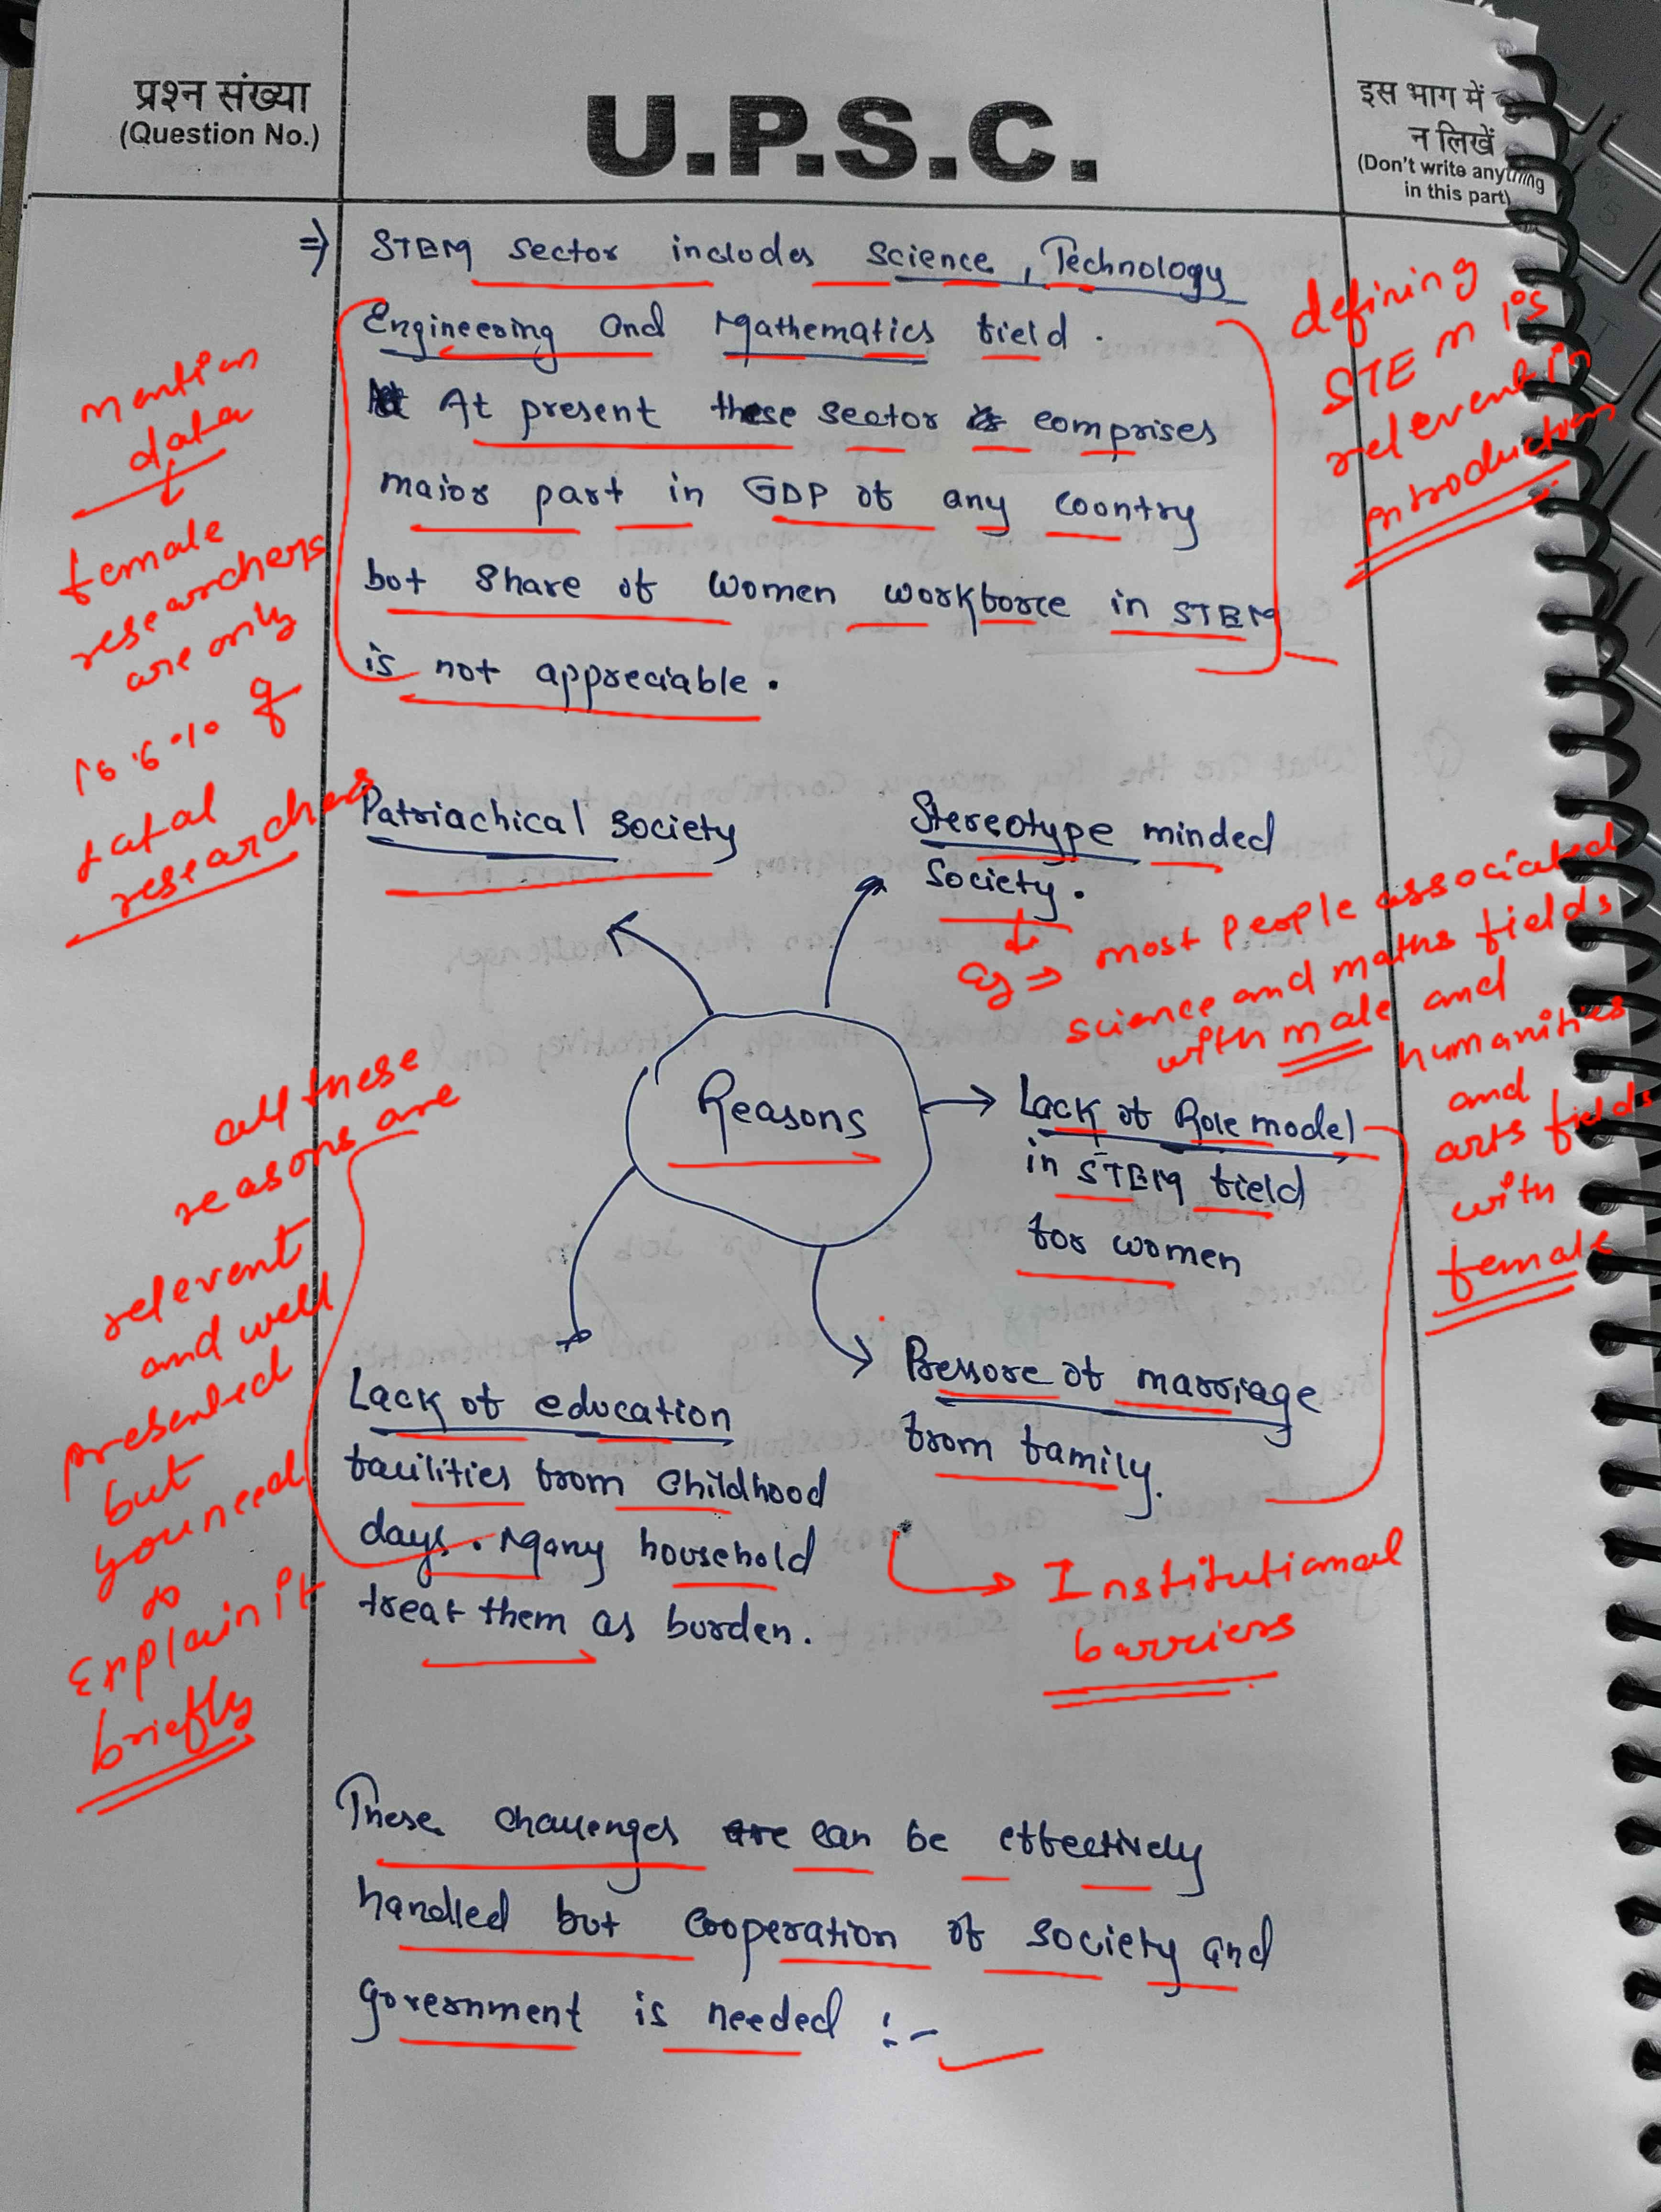 प्रश्न संख्या
(Question No.)
U.P.S.C.
इस भाग में
न लिखें
(Don't write anything
in this part)
⇒ STEM sector includes Science, Technology
Engineering and Mathematics field.
At present these sector comprises
major part in GDP of any country
but share of women workforce in STEM
is not appreciable.
defining
STEM is
relevent in
introduction
mention
data
female
researchers
are only
16.6% of
total
researchers
Patriachical society
Stereotype minded
Society.
eg ⇒ most people associated
science and maths fields
with male and
humanities
and
arts fields
with
female
Reasons
Lack of Role model
in STEM field
for women
Pressure of marriage
from family.
Institutional
barriers
Lack of education
facilities from childhood
days. Many household
treat them as burden.
all these
reasons are
relevent
and well
presented
but
you need
to
Explain it
briefly
These challenges can be effectively
handled but cooperation of society and
government is needed :-